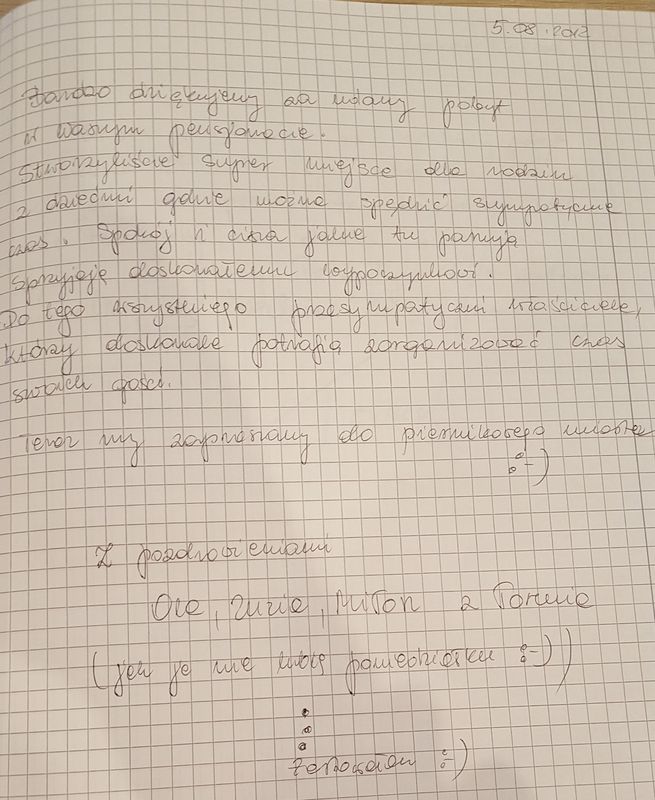 5.08.2012
Bardzo dziękujemy za udany pobyt
w waszym pensjonacie.
Stworzyliście super miejsce dla rodzin
z dziećmi gdzie można spędzić sympatycznie
czas. Spokój i cisza jakie tu panują
sprzyjają doskonałemu wypoczynkowi.
Do tego wszystkiego przesympatyczni właściciele,
którzy doskonale potrafią zorganizować czas
swoich gości.
Teraz my zapraszamy do piernikowego miasta
:-)
Z pozdrowieniami
Ola, Zuzia, Miłon z Torunia
(jak ja nie lubię poniedziałku :-))
żartowałam :-)